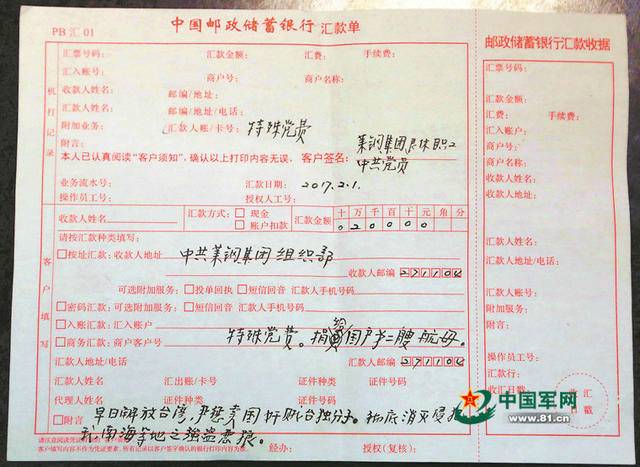 PB 汇 01
中国邮政储蓄银行 汇款单
汇票号码: 汇款金额: 汇费: 手续费:
汇入账号: 商户号: 商户名称:
收款人姓名: 邮编/地址:
汇款人姓名: 邮编/地址/电话:
附加业务: 汇款人账/卡号: 特殊党费
附言: 莱钢集团退休职工
本人已认真阅读“客户须知”,确认以上打印内容无误。 客户签名: 中共党员
业务流水号: 汇款日期: 2017.2.1.
操作员工号: 授权人工号:
机打记录
收款人姓名 汇款方式: 现金 账户扣款 汇款金额 十万千百十元角分
020000
请按汇款种类填写:
按址汇款: 收款人地址 中共莱钢集团组织部
收款人邮编 271104
可选附加服务: 投单回执 短信回音 汇款人手机号码
密码汇款: 可选附加服务: 短信回音 汇款人手机号码
入账汇款: 汇入账户
商务汇款: 商户客户号 特殊党费。捐 国产第二艘航母。
汇款人地址/电话 汇款人邮编 271104
汇款人姓名 汇出账/卡号 证件种类 证件号码
代理人姓名 证件种类 证件号码
附言 早日解放台湾, 严惩卖国奸贼台独分子。彻底消灭侵犯
我南海等地之强盗恶狼。
客户填写
经办: 授权(复核):
邮政储蓄银行汇款收据
汇票号码:
汇款金额:
汇费: 手续费:
汇入账户:
商户号:
商户名称:
收款人姓名:
收款人地址:
汇款人姓名:
汇款人地址/电话:
汇款人账号:
附加服务:
附言:
操作员工号:
汇款行:
收汇日期:
收汇日戳
中国军网
www.81.cn